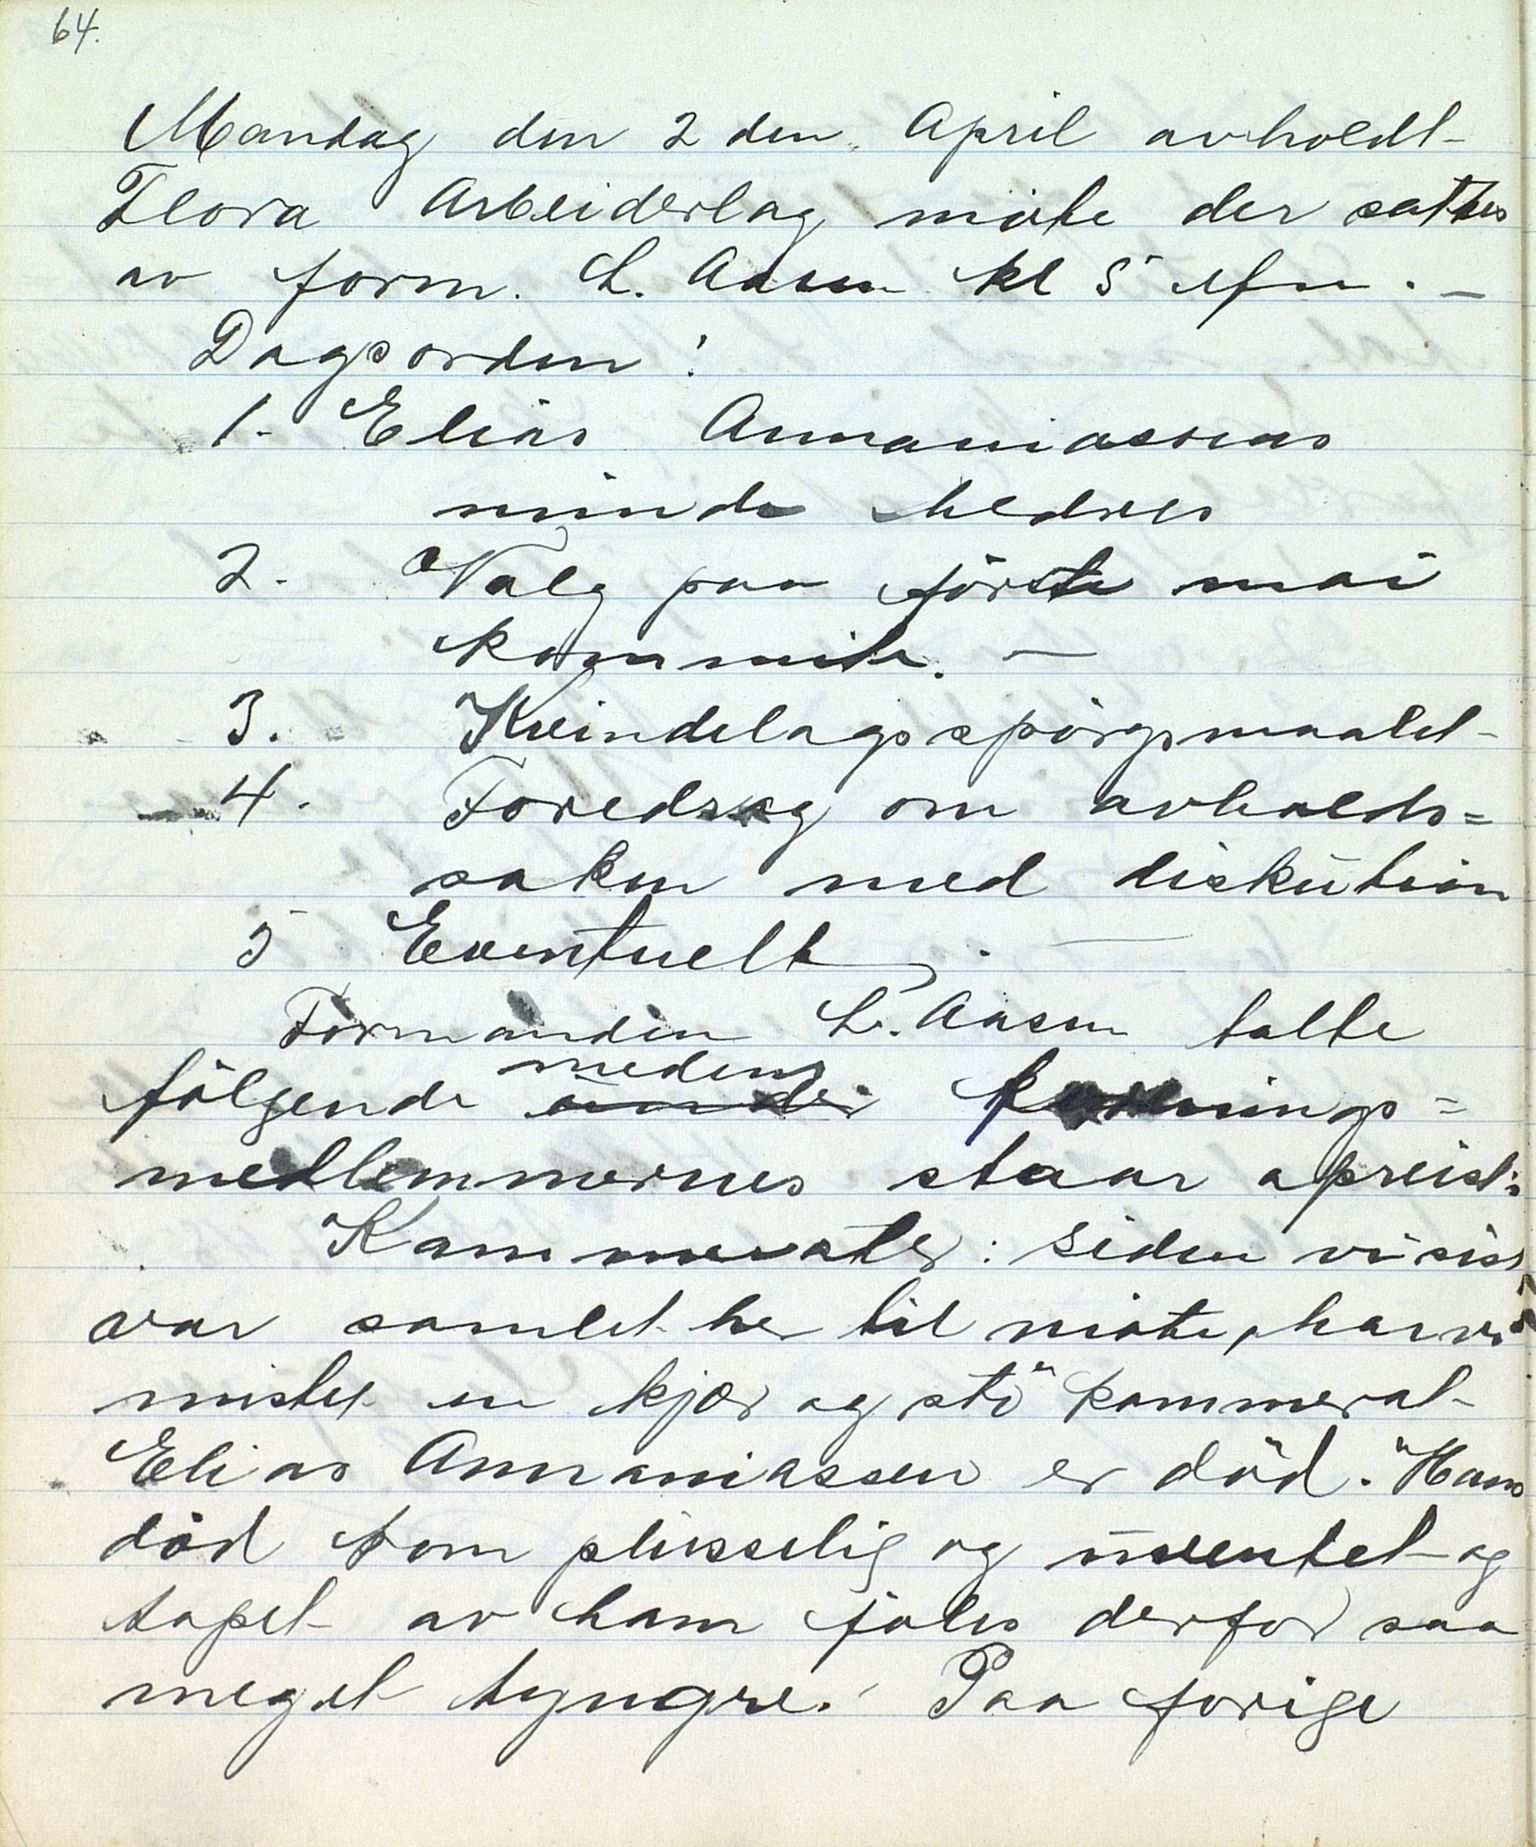 64.
Mandag den 2 den April avholdt
Flora Arbeiderlag möte der sattes
av form. L. Aasen kl 5 efm. —
Dagsorden :
1. Elias Annaniassens
minde hedres
2. Valg paa förste mai
kommite. —
3. Kvindelagsspörgsmaalet
4. Foredrag om avholds=
saken med diskution
5 Eventuelt . —
Formanden L. Aasen talte
medens
fölgende under forenings=
medlemmernes staar opreist:
Kammerater: siden vi sist
var samlet her til möte, har vi
mistet en kjær og stö kammerat
Elias Annaniassen er död. Hans
död kom plusselig og uventet og
tapet av ham föles derfor saa
meget tyngre. Paa forige